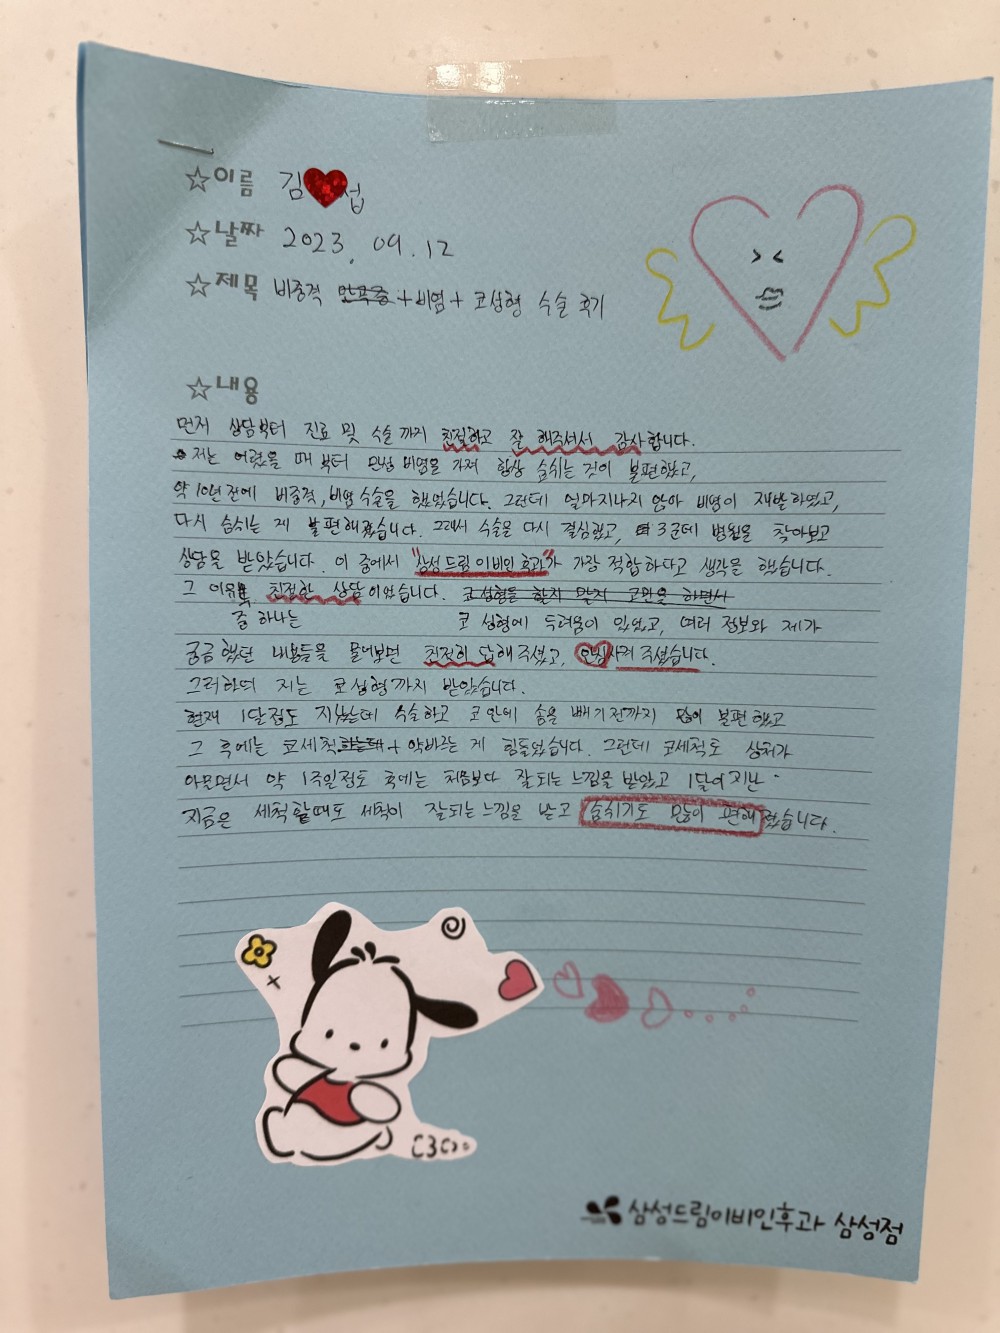 ☆이름 김❤섭
☆날짜 2023. 09. 12
☆제목 비중격 만곡증 + 비염 + 코성형 수술 후기
☆내용
먼저 상담부터 진료 및 수술까지 친절하고 잘 해주셔서 감사합니다.
저는 어렸을 때부터 만성 비염을 가져 항상 숨쉬는 것이 불편했고,
약 10년 전에 비중격, 비염 수술을 했었습니다. 그런데 얼마지나지 않아 비염이 재발하였고,
다시 숨쉬는 게 불편해졌습니다. 그래서 수술을 다시 결심했고, 3군데 병원을 찾아보고
상담을 받았습니다. 이 중에서 "삼성드림이비인후과"가 가장 적합하다고 생각을 했습니다.
그 이유 친절한 상담이었습니다. 코성형을 할지 말지 고민을 하면서
중 하나는 코 성형에 두려움이 있었고, 여러 정보와 제가
궁금했던 내용들을 물어보면 친절히 답해주셨고, 안심시켜 주셨습니다.
그리하여 저는 코성형까지 받았습니다.
현재 1달정도 지났는데 수술하고 코 안에 솜을 빼기전까지 많이 불편했고
그 후에는 코세척 + 약바르는 게 힘들었습니다. 그런데 코세척도 상처가
아물면서 약 1주일정도 후에는 처음보다 잘되는 느낌을 받았고 1달이 지난
지금은 세척할때도 세척이 잘되는 느낌을 받고 숨쉬기도 많이 편해졌습니다.
삼성드림이비인후과 삼성점